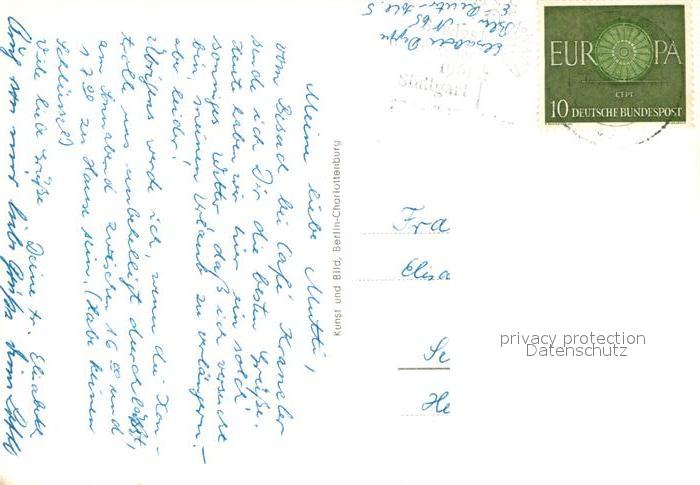 Meine liebe Mutti,
vom Besuch bei Café Kranzler
sende ich Dir die besten Grüße.
Heute haben wir hier ein solch
sonniges Wetter, daß ich versucht
bin, meinen Urlaub zu verlängern. –
aber leider!
Übrigens werde ich, wenn die Kon-
trolle uns unbehelligt durchläßt,
am Sonnabend zwischen 16 00 und
17 00 zu Hause sein. (Habe keinen
Schlüssel!)
Viele liebe Grüße
Deine tr. Elisabeth
von mir liebe Grüße
Kunst und Bild, Berlin-Charlottenburg
Elisabeth
Bln. N 65
1961
Stuttgart
EUROPA
CEPT
10 DEUTSCHE BUNDESPOST
Fra
Elisa
Se
He
privacy protection
Datenschutz